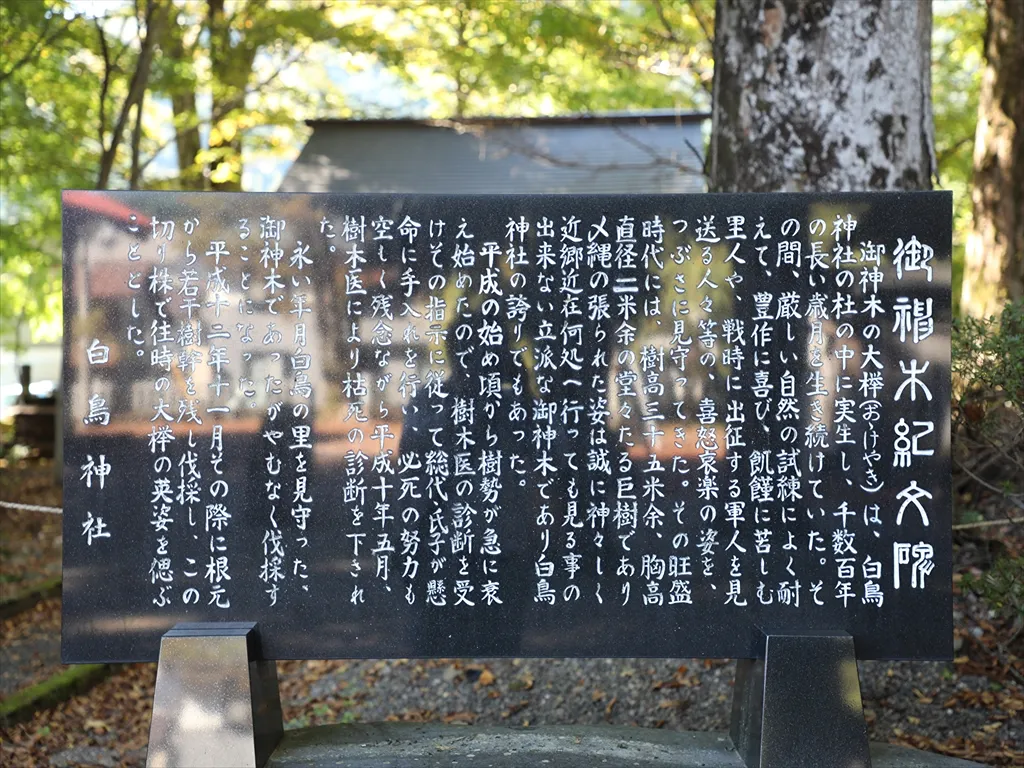 御神木紀文碑
御神木の大欅(おゝけやき)は、白鳥
神社の杜の中に実生し、千数百年
の長い歳月を生き続けていた。そ
の間、厳しい自然の試練によく耐
えて、豊作に喜び、飢饉に苦しむ
里人や、戦時に出征する軍人を見
送る人々等の、喜怒哀楽の姿を、
つぶさに見守ってきた。その旺盛
時代には、樹高三十五米余、胸高
直径二米余の堂々たる巨樹であり
〆縄の張られた姿は誠に神々しく
近郷近在何処へ行っても見る事の
出来ない立派な御神木であり白鳥
神社の誇りでもあった。
平成の始め頃から樹勢が急に衰
え始めたので、樹木医の診断を受
けその指示に従って総代、氏子が懸
命に手入れを行い、必死の努力も
空しく残念ながら平成十年五月、
樹木医により枯死の診断を下され
た。
永い年月白鳥の里を見守った、
御神木であったがやむなく伐採す
ることになった。
平成十二年十一月その際に根元
から若干樹幹を残し伐採し、この
切り株で往時の大欅の英姿を偲ぶ
こととした。
白鳥神社